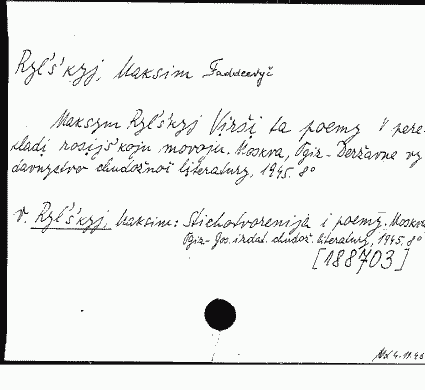 Ryl's'kyj, Maksim Faddeevyč
Maksym Ryl's'kyj Virši ta poemy v pere-
kladi rosijs'koju movoju. Moskva, Ogiz-Deržavne vy
davnyctvo chudožnoi literatury, 1945. 8°
v. Ryl's'kyj, Maksim: Stichotvorenija i poemy. Moskva
Ogiz-Gos. izdat. chudož. literatury, 1945. 8°
[188703]